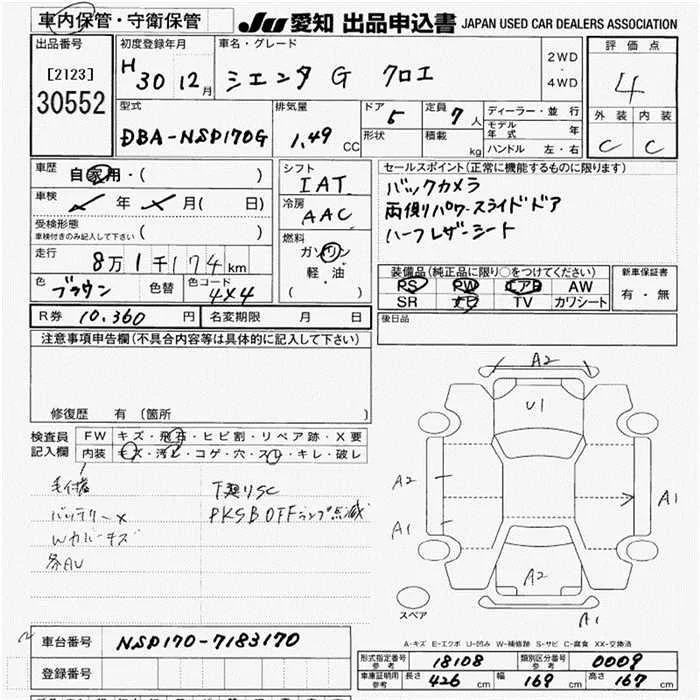 車内保管・守衛保管
JU 愛知 出品申込書 JAPAN USED CAR DEALERS ASSOCIATION
出品番号
[2123]
30552
初度登録年月
H30 12月
車名・グレード
シエンタ G クロエ
2WD
・
4WD
評価点
4
外装 内装
C C
型式
DBA-NSP170G
排気量
1.49 CC
ドア 5
形状
定員 7人
積載 kg
ディーラー・並行
モデル年式 年
ハンドル 左・右
車歴
自家用・( )
車検
年 月( 日)
受検形態
車検付きのみ記入して下さい ( )
走行
8万1千174km
色 ブラウン 色替 色コード 4X4
シフト
IAT
冷房
AAC
燃料
ガソリン
軽・油
( )
セールスポイント(正常に機能するものに限ります)
バックカメラ
両側リパワースライドドア
ハーフレザーシート
装備品(純正品に限り○をつけてください)
PS PW エアB AW
SR ナビ TV カワシート
新車保証書
有・無
後日品
R券 10,360 円 名変期限 月 日
注意事項申告欄(不具合内容等は具体的に記入して下さい)
修復歴 有 (箇所 )
検査員記入欄
FW キズ・飛石・ヒビ割・リペア跡・X要
内装 キズ・汚レ・コゲ・穴・スレ・キレ・破レ
下廻りSC
バッテリーX PKSB OFFランプ点滅
Wカバーキズ
各AU
A2
U1
A2
A1
A1
A2
A1
スペア
A-キズ E-エクボ U-凹み W-補修跡 S-サビ C-腐食 XX-交換済
車台番号 NSP170-7183170
登録番号
形式指定番号 参考 18108 類別区分番号 参考 0009
車庫証明用 参考 長さ 426 cm 幅 169 cm 高さ 167 cm